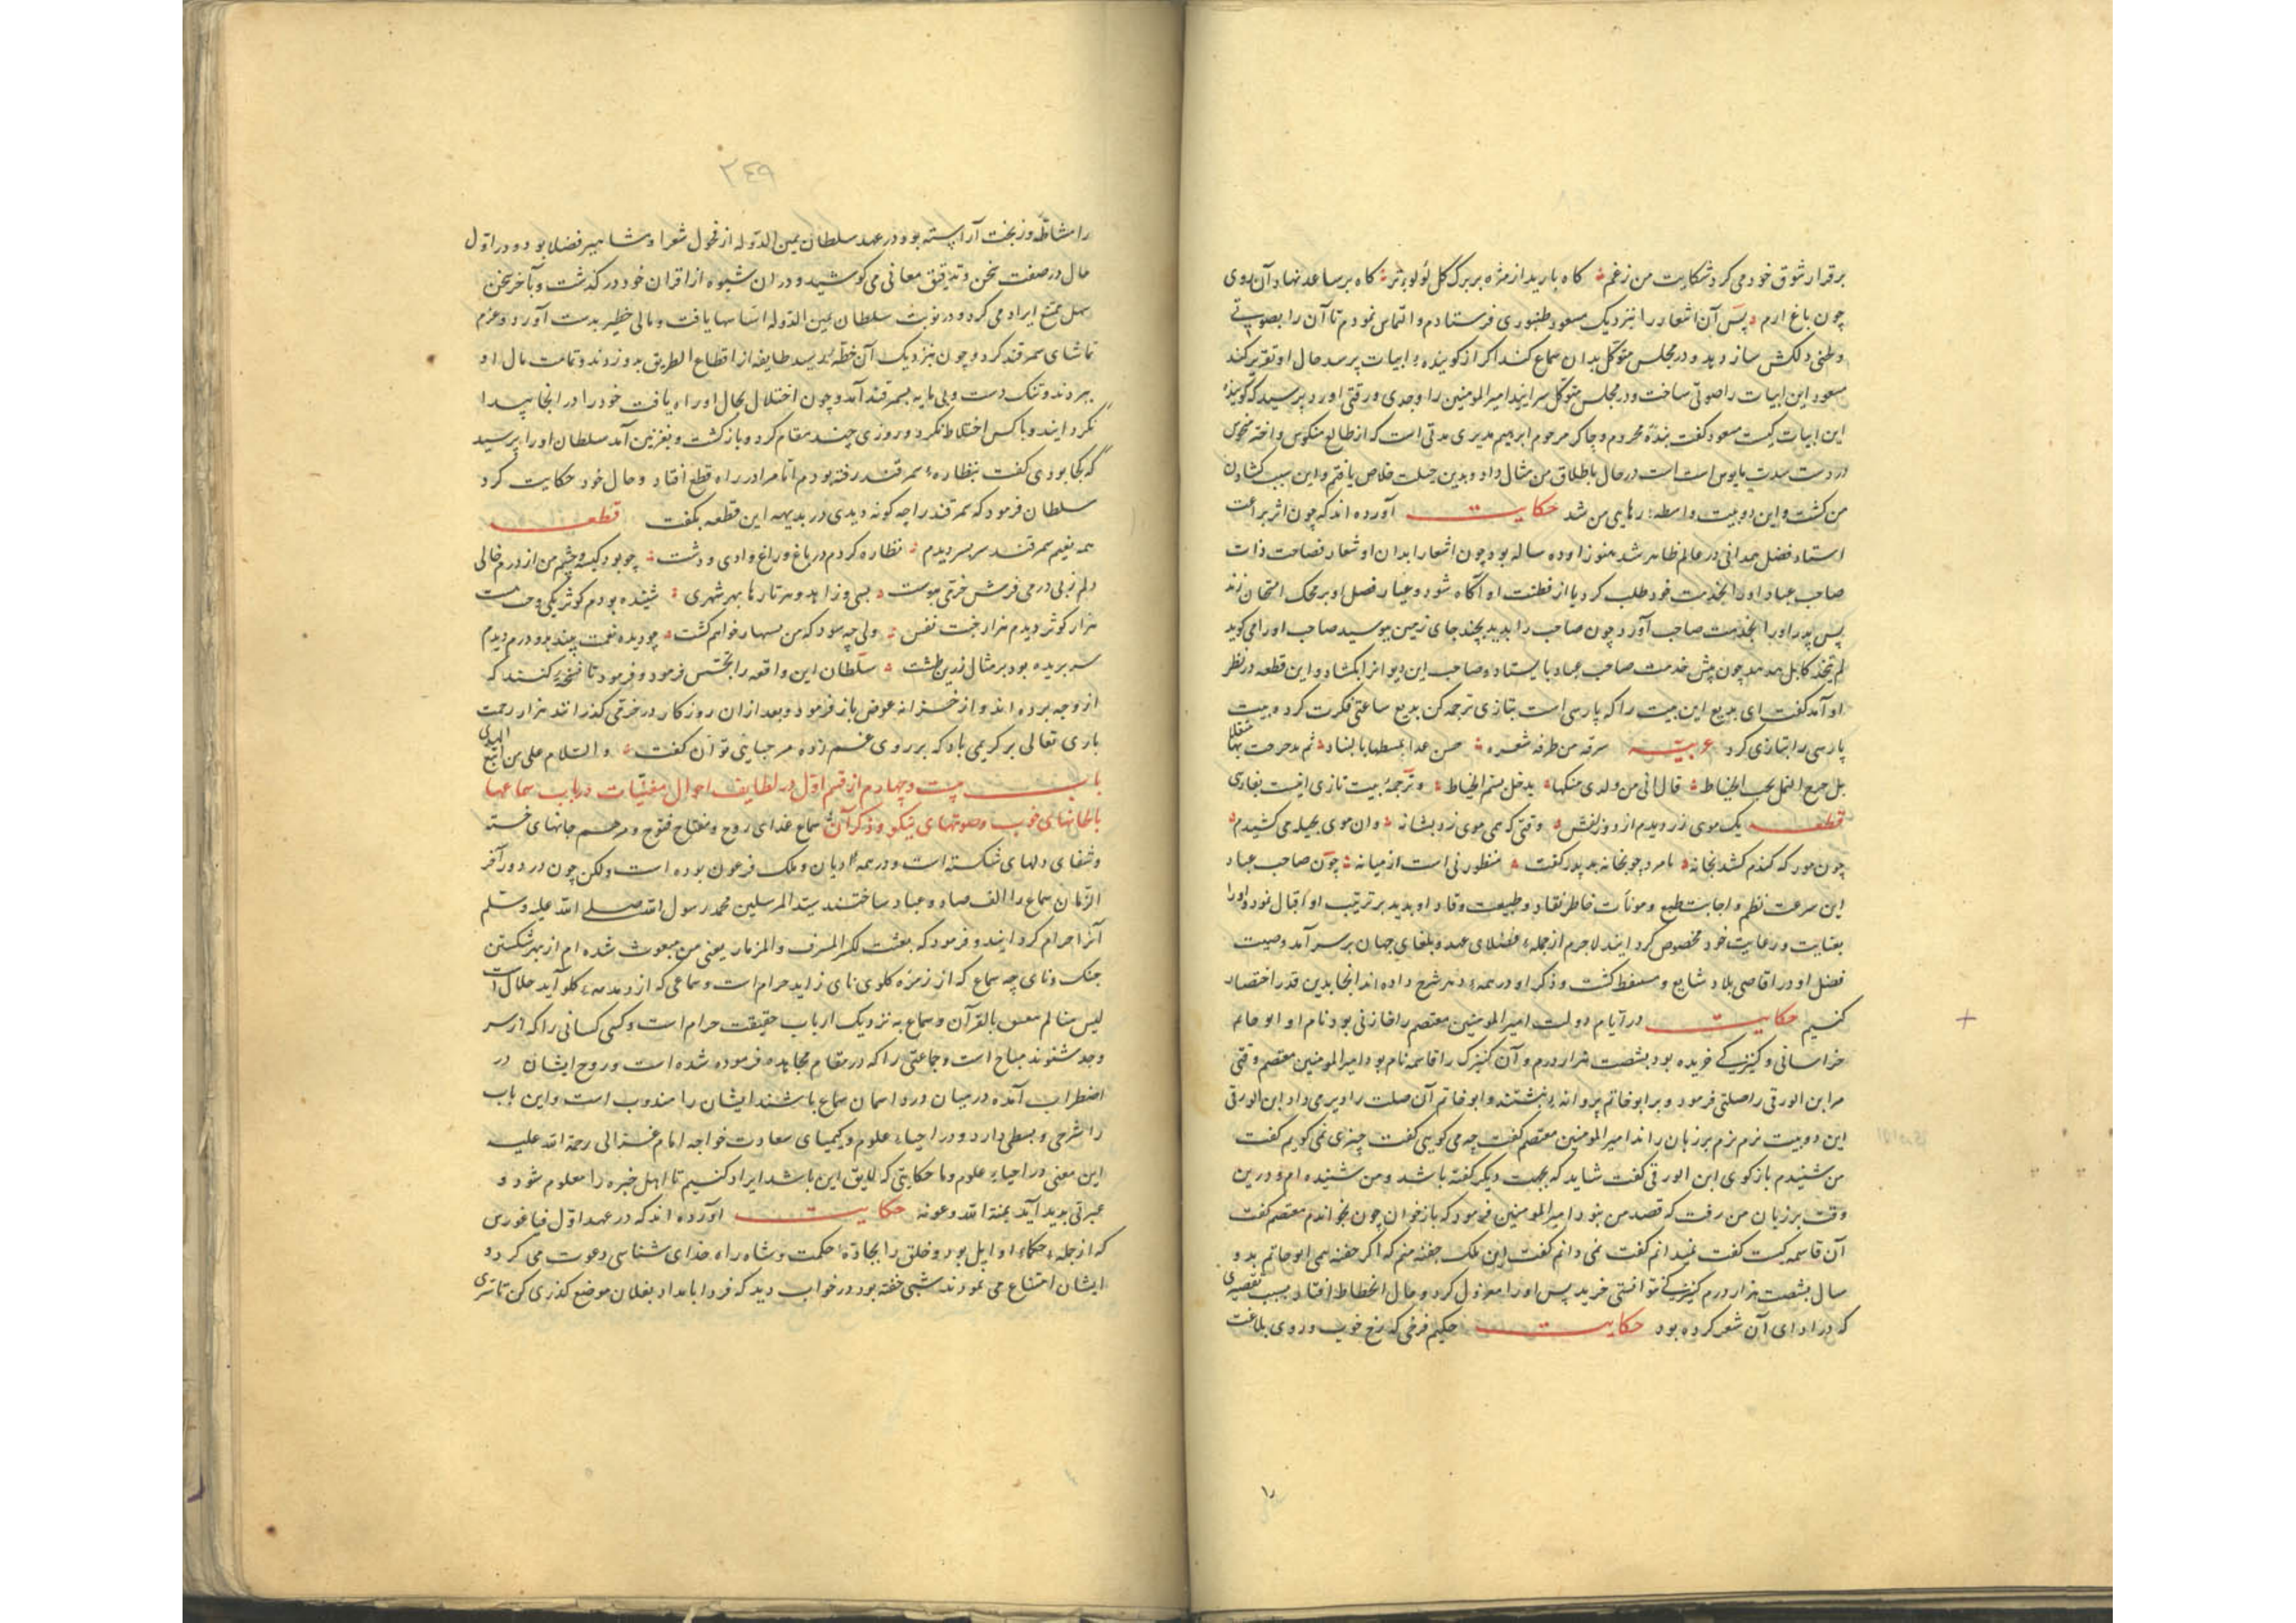 برقرار شوق خود می کرد شکایت من زغم ؞ کاه بارید از مژه بر برک کل لولوء تر ؞ کاه بر ساعد نهاد آن روی
چون باغ ارم ؞ پس آن اشعار را نزدیک مسعود طنبوری فرستادم و التماس نمودم تا آن را بصوتی
وطنی دلکش سازد و در مجلس متوکل بدان سماع کند اکر از کوینده ابیات پرسد حال او تقریر کند
مسعود این ابیات را صوتی ساخت و در مجلس متوکل سرایید امیرالمومنین را وجدی ورقتی اورد پرسید که کوینده
این ابیات کیست مسعود کفت بنده محروم و چاکر مرحوم ابرهیم مدبری مدتی است که از طالع منکوس و اختر منحوس
در دست محبوس است در حال باطلاق من مثال داد و بدین حیلت خلاص یافتم و این سبب کشادن
من کشت و این دو بیت واسطه رهایی من شد حکایت آورده اند که چون اثر براعت
استاد فضل همدانی در عالم ظاهر شد هنوز او ده ساله بود چون اشعار ابدان او شعار فصاحت ذات
صاحب عباد او را بخدمت خود طلب کرد تا از فطنت او آکاه شود و عیار فضل او بر محک امتحان زند
پس پدر او را بخدمت صاحب آورد چون صاحب را بدید بچند جای زمین ببوسید صاحب او را می کوید
چون پیش خدمت صاحب عباد بایستاد و صاحب این دیوانرا بکشاد و این قطعه در نظر
او آمد کفت ای بدیع این بیت را که پارسی است بتازی ترجمه کن بدیع ساعتی فکرت کرد و بیت
پارسی را بتازی کرد عربیته سرقه من طرفه شعره ؞ حسن غدا بمسطها بالبناد ؞ ثم تدحرجت بها مثقلا
تدحرج النمل بحب الخیاط ؞ قال ابی من ولدی منکما ؞ یدخل سم الخیاط ؞ و ترجمه بیت تازی اینست بفارسی
قطعه یک موی زر دیدم از دو زلفش ؞ وقتی که همی موی زد بشانه ؞ و ان موی بحیله می کشیدم ؞
چون مور که کندم کشد بخانه ؞ نامرد چو بخانه بد پدر کفت ؞ منظور نی است از میانه ؞ چون صاحب عباد
این سرعت نظم و اجابت طبع و موئات خاطر نقاد و طبیعت وقاد او بدید بر ترتیب او اقبال نمود و او را
بعنایت و رعایت خود مخصوص کردانید لاجرم از جمله فضلای عهد و بلغای جهان بر سر آمد و صیت
فضل او در اقاصی بلاد شایع و مستفیض کشت و ذکر او در همه شرح داده اند انجا بدین قدر اختصار
کنیم حکایت در ایام دولت امیر المومنین معتصم را خازنی بود نام او ابو حاتم
خراسانی و کنیزکی خریده بود بشصت هزار درم و آن کنیزک را قاسمه نام بود امیرالمومنین معتصم وقتی
مر ابن الورقی را صلتی فرمود و بر ابو حاتم پروانه بنبشتند و ابو حاتم آن صلت را دیر می داد ابن الورقی
این دو بیت نرم نرم بر زبان راند امیرالمومنین معتصم کفت چه می کویی کفت چیزی نمی کویم کفت
من شنیدم باز کوی ابن الورقی کفت شاید که بجهت دیکر کفته باشد و من شنیده ام و درین
وقت بر زبان من رفت که قصد من نبود امیرالمومنین فرمود که باز خوان چون بخواندم معتصم کفت
آن قاسمه کیست کفت نمیدانم کفت نمی دانم کفت این ملک منم که اکر ابو حاتم بدو
سال بشصت هزار درم کنیزک توانستی خرید پس او را معزول کرد و حال انحطاط افتاد بسبب تقصیری
که در ادای آن شعر کرده بود حکایت حکیم فرخی که رخ خوب و روی بلاغت
۲۴۹
را مشاطه وزبخت آراسته بود در عهد سلطان یمین الدوله از فحول شعرا و مشاهیر فضلا بود و در اول
حال در صفت سخن و تدقیق معانی می کوشید و در ان شیوه از اقران خود در کذشت و بآخر سخن
سهل ممتنع ایراد می کرد و در نوبت سلطان یمین الدوله انتاسها یافت و مالی خطیر بدست آورد و عزم
تماشای سمرقند کرد و چون بنزدیک آن خطه رسید طایفه از اقطاع الطریق بدو زدند و تمامت مال او
ببردند و تنک دست و بی مایه بسمرقند آمد و چون اختلال بحال او راه یافت خود را در انجا پیدا
نکردانید و با کس اختلاط نکرد و روزی چند مقام کرد و باز کشت و بغزنین آمد سلطان او را پرسید
که کجا بودی کفت بنظاره سمرقند رفته بودم اما مرا در راه قطع افتاد و حال خود حکایت کرد
سلطان فرمود که سمرقند را چه کونه دیدی در بدیهه این قطعه بکفت قطعه
همه نعیم سمرقند سر بسر دیدم ؞ نظاره کردم در باغ و راغ و وادی و دشت ؞ چو بود کیسه و چشم من از درم خالی
دلم ز بی درمی فرش خرمی بنوشت ؞ بسی ز اهل هنر بارها بهر شهری ؞ شنیده بودم کوثر یکی و جنت هشت
هزار کوثر دیدم هزار جنت نفس ؞ ولی چه سود که من خواهم کشت ؞ چو دیده نعمت بیند بدو درم دیدم
سر بریده بود بر مثال زرین طشت ؞ سلطان این واقعه را تجسس فرمود و فرمود تا تفحص کنند که
از وجه برده اند و از خزانه عوض باز فرمود و بعد از ان روز کار در خرمی کذرانند هزار رحمت
باری تعالی بر کریمی باد که بر روی غم زده مرحبایی تو آن کفت ؞ و السلام علی من اتبع الهدی
باب بیست و چهارم از قسم اول در لطایف احوال مغنیات در باب سماعها
بالحانهای خوب و صوتهای نیکو و ذکر آن سماع غذای روح و مفتاح فتوح و مرهم جانهای خسته
و شفای دلهای شکسته است و در همه ادیان و ملک فرعون بوده است ولکن چون در دور آخر
الزمان سماع را الف صاد و عباد ساختند سید المرسلین محمد رسول الله صلی الله علیه وسلم
آنرا حرام کردانید و فرمود که بعثت لکسر المعزف و المزمار یعنی من مبعوث شده ام از بهر شکستن
جنک و نای چه سماع که از زمزمه کلوی نای زاید حرام است و سماعی که از کلو آید حلال است
لیس منا لم یتغن بالقرآن و سماع به نزدیک ارباب حقیقت حرام است و کسی کسانی را که از سر
وجد شنوند مباح است و جماعتی را که در مقام مجاهده فرموده شده است و روح ایشان در
اضطراب آمده در میان درد اسمان سماع باشند ایشان را مندوب است و این باب
را شرحی و بسطی دارد و در احیاء علوم و کیمیای سعادت خواجه امام غزالی رحمة الله علیه
این معنی در احیاء علوم و ما حکایتی که لایق این باشد ایراد کنیم تا اهل خبره را معلوم شود و
عبرتی بدید آید بمنة الله و عونه حکایت آورده اند که در عهد اول فیاغورس
که از جمله حکماء اوایل بود و خلق را بجاده حکمت و شاه راه خدای شناسی دعوت می کرد و
ایشان امتناع می نمودند شبی خفته بود در خواب دید که فردا بامداد بفلان موضع کذری کن تا سری